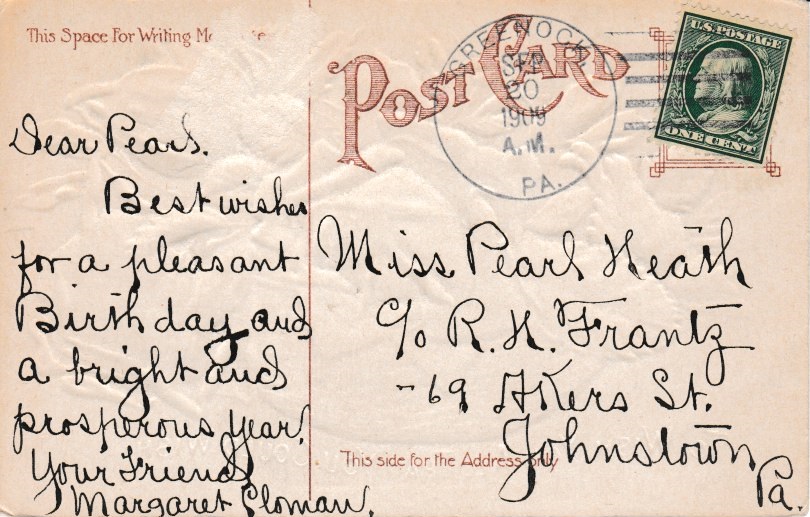 This Space For Writing
POST CARD
GREENOCK
SEP
20
1909
A.M.
PA.
U.S. POSTAGE
ONE CENT
Dear Pearl.
Best wishes
for a pleasant
Birthday and
a bright and
prosperous year.
Your Friend
Margaret Ploman.
Miss Pearl Heath
c/o R. H. Frantz
-69 Akers St.
Johnstown
Pa.
This side for the Address only